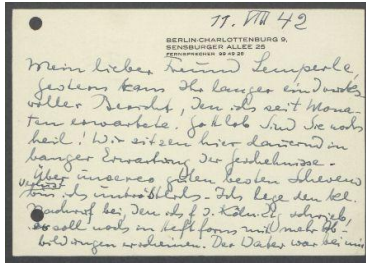 11. VIII 42
BERLIN-CHARLOTTENBURG 9,
SENSBURGER ALLEE 25
FERNSPRECHER 99 49 25
Mein lieber Freund Lemperle,
gestern kam Ihr langer eindrucks
voller Bericht, den ich seit Mona-
ten erwartete. Gottlob sind Sie noch
heil! Wir sitzen hier dauernd in
banger Erwartung der Geschehnisse.
Über unseres guten besten
Verlust
bin ich untröstlich. Ich lege den kl.
Nachruf bei, den ich f. d. Köln. Ztg schrieb,
er soll noch in Heftform mit mehr Ab-
bildungen erscheinen. Der Vater war bei mir